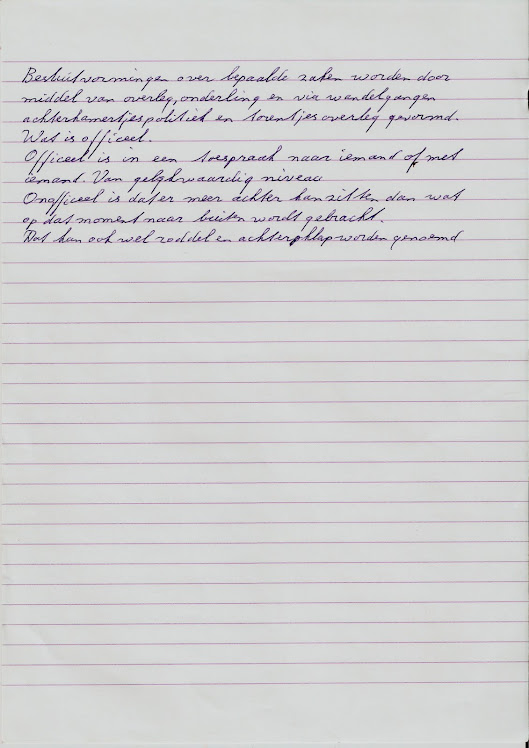 Besluitvormingen over bepaalde zaken worden door
middel van overleg, onderling en via wandelgangen
achterkamertjespolitiek en torentjesoverleg gevormd.
Wat is officeel.
Officeel is in een toespraak naar iemand of met
iemand. Van gelijkwaardig niveau
Onofficeel is dat er meer achter kan zitten dan wat
op dat moment naar buiten wordt gebracht.
Dat kan ook wel roddel en achterklap worden genoemd